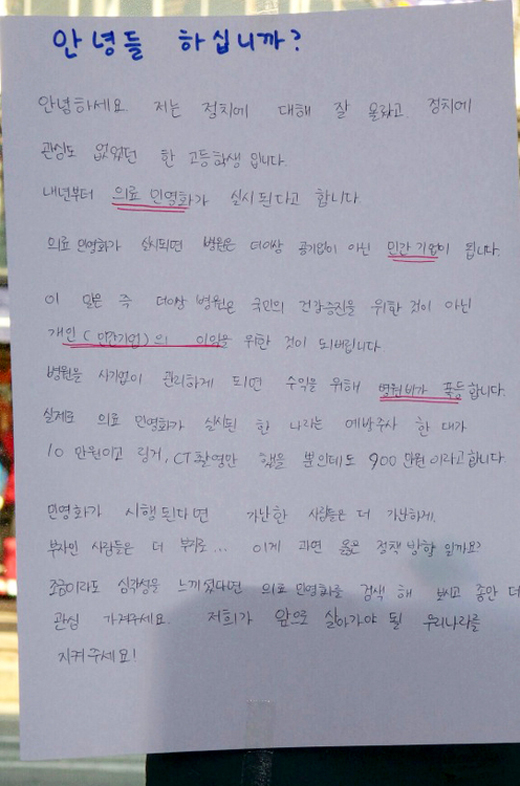 안녕들 하십니까?
안녕하세요 저는 정치에 대해 잘 몰랐고, 정치에
관심도 없었던 한 고등학생 입니다.
내년부터 의료 민영화가 실시 된다고 합니다.
의료 민영화가 실시되면 병원은 더이상 공기업이 아닌 민간 기업이 됩니다.
이 말은 즉 더이상 병원은 국민의 건강증진을 위한 것이 아닌
개인(민간기업)의 이익을 위한 것이 되버립니다
병원을 사기업이 관리하게 되면 수익을 위해 병원비가 폭등합니다.
실제로 의료 민영화가 실시된 한 나라는 예방주사 한 대가
10만원이고 링거, CT촬영만 했을 뿐인데도 900만원이라고합니다.
민영화가 시행된다면 가난한 사람들은 더 가난하게.
부자인 사람들은 더 부자로... 이게 과연 옳은 정책 방향 일까요?
조금이라도 심각성을 느끼셨다면 의료 민영화를 검색 해 보시고 좀만 더
관심 가져주세요. 저희가 앞으로 살아가야 될 우리나라를
지켜주세요!